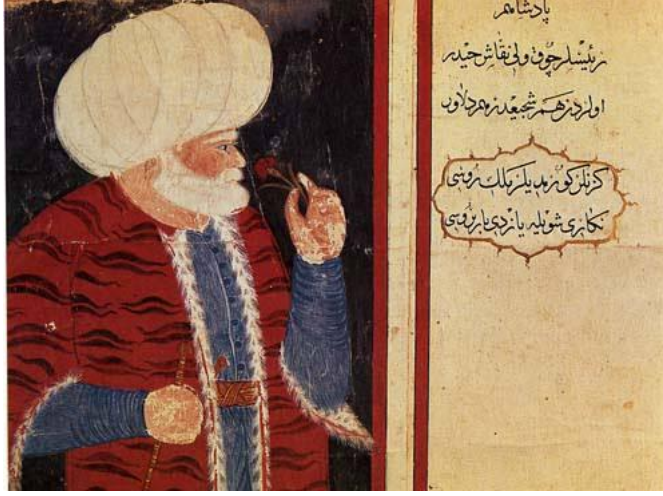 پادشاهم
رئیسلر چوق ولی نقاش حیدر
اولردن هم شجیعدر هم دلاور
کرنلر کورمدیلر بلك
نکاری شویله یازدی یار